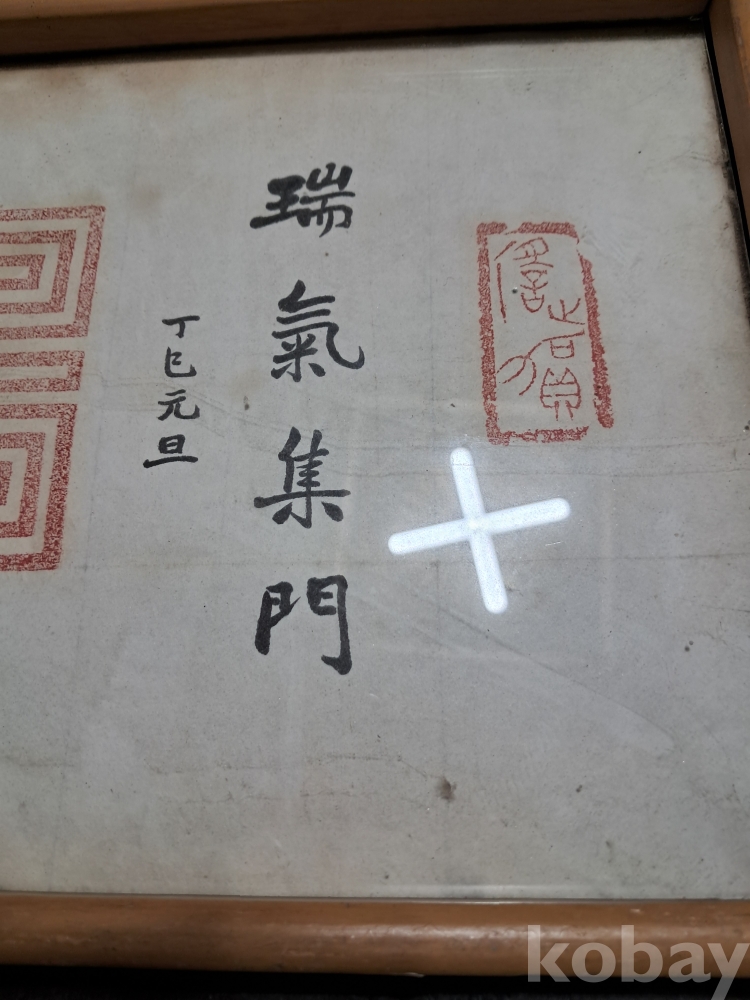 瑞氣集門
丁巳元旦
kobay